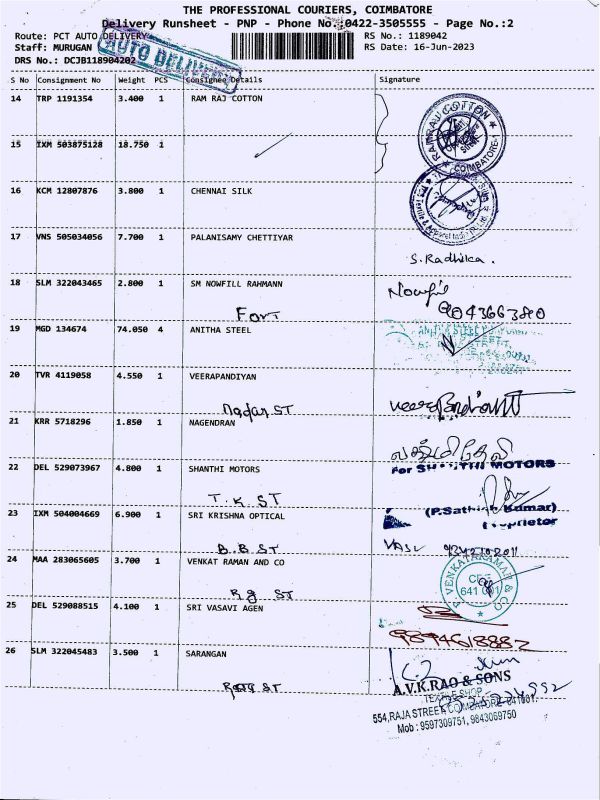 THE PROFESSIONAL COURIERS, COIMBATORE
Delivery Runsheet - PNP - Phone No.:0422-3505555 - Page No.:2
Route: PCT AUTO DELIVERY RS No.: 1189042
Staff: MURUGAN RS Date: 16-Jun-2023
DRS No.: DCJB118904202
AUTO DELIVERY
S No Consignment No Weight PCS Consignee Details Signature
14 TRP 1191354 3.400 1 RAM RAJ COTTON
RAMRAJ COTTON COIMBATORE-1
15 IXM 503875128 18.750 1
16 KCM 12807876 3.800 1 CHENNAI SILK
17 VNS 505034056 7.700 1 PALANISAMY CHETTIYAR
S. Radhika.
18 SLM 322043465 2.800 1 SM NOWFILL RAHMANN
Fort
9043663840
19 MGD 134674 74.050 4 ANITHA STEEL
20 TVR 4119058 4.550 1 VEERAPANDIYAN
Nadar ST
21 KRR 5718296 1.850 1 NAGENDRAN
22 DEL 529073967 4.800 1 SHANTHI MOTORS
For SHANTHI MOTORS
T.K ST
(P.Sathish Kumar)
Proprietor
23 IXM 504004669 6.900 1 SRI KRISHNA OPTICAL
B.B.ST
VASU
24 MAA 283065605 3.700 1 VENKAT RAMAN AND CO
VENKATARAMAN & CO
CBE
641 001
Rg ST
25 DEL 529088515 4.100 1 SRI VASAVI AGEN
9894618882
26 SLM 322045483 3.500 1 SARANGAN
A.V.K.RAO & SONS
TEXTILE SHOP
554, RAJA STREET, COIMBATORE-641001.
Mob : 9597309751, 9843069750